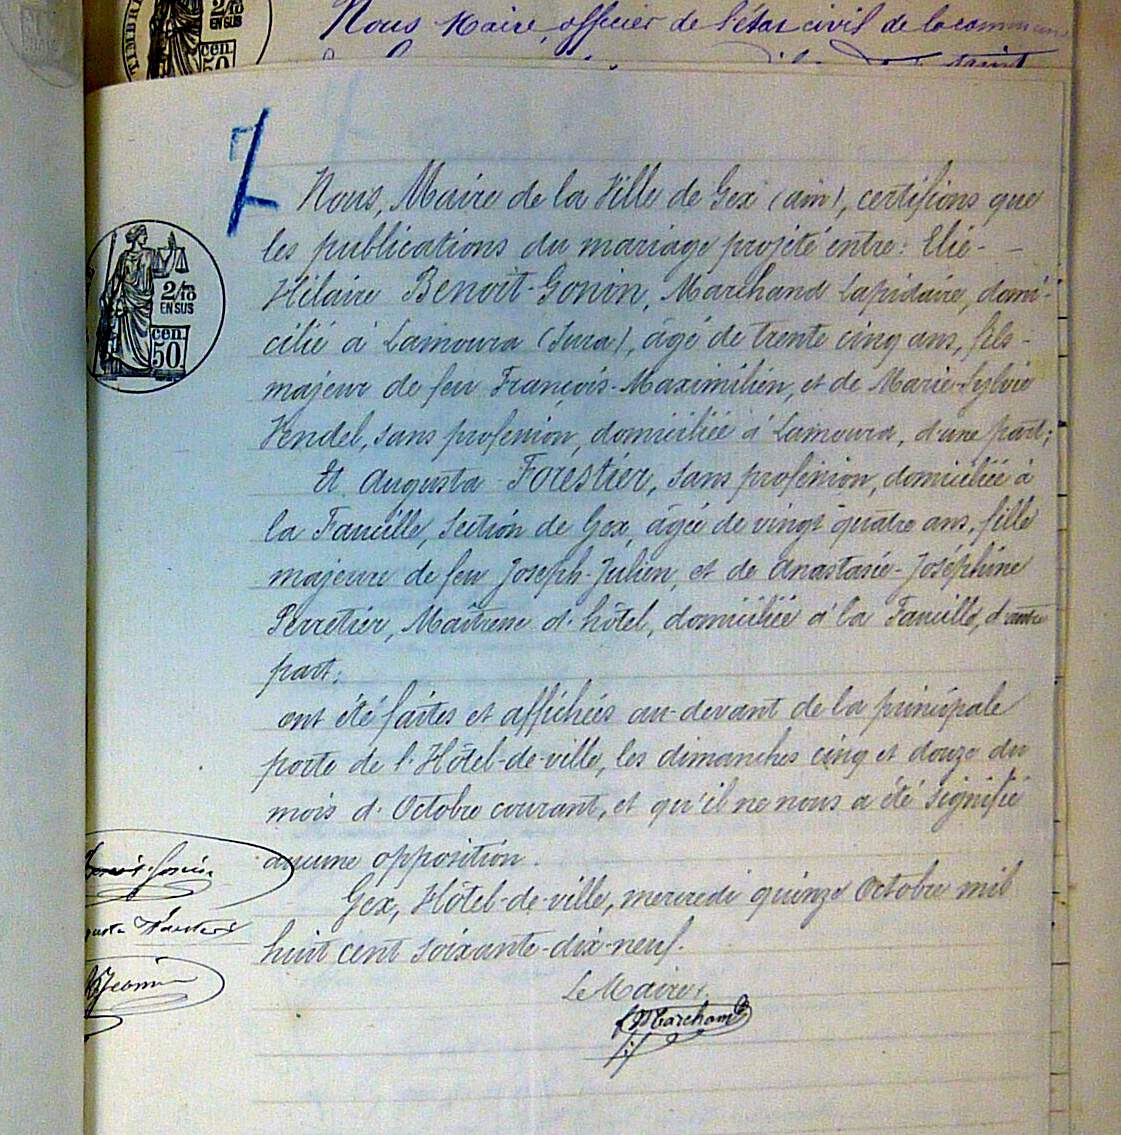 Nous Maire, officier de l'état civil de la commune
TIMBRE
2/10
EN SUS
cen.
50
7
Nous, Maire de la Ville de Gex (ain), certifions que
les publications du mariage projeté entre: Elie-
Hilaire Benoit-Gonin, Marchand Lapidaire, domi-
cilié à Lamoura (Jura), âgé de trente cinq ans, fils
majeur de feu François-Maximilien, et de Marie-Sylvie
Vendel, sans profession, domiciliée à Lamoura, d'une part;
Et Augusta Forestier, sans profession, domiciliée à
la Faucille, Section de Gex, âgée de vingt quatre ans, fille
majeure de feu Joseph-Julien, et de Anastasie-Joséphine
Perretier, Maîtresse d'hôtel, domiciliée à la Faucille, d'autre
part;
ont été faites et affichées au-devant de la principale
porte de l'Hôtel-de-ville, les dimanches cinq et douze du
mois d'Octobre courant, et qu'il ne nous a été signifié
aucune opposition.
Gex, Hôtel-de-ville, mercredi quinze Octobre mil
huit cent soixante-dix-neuf.
Le Maire,
2/10
EN SUS
cen.
50